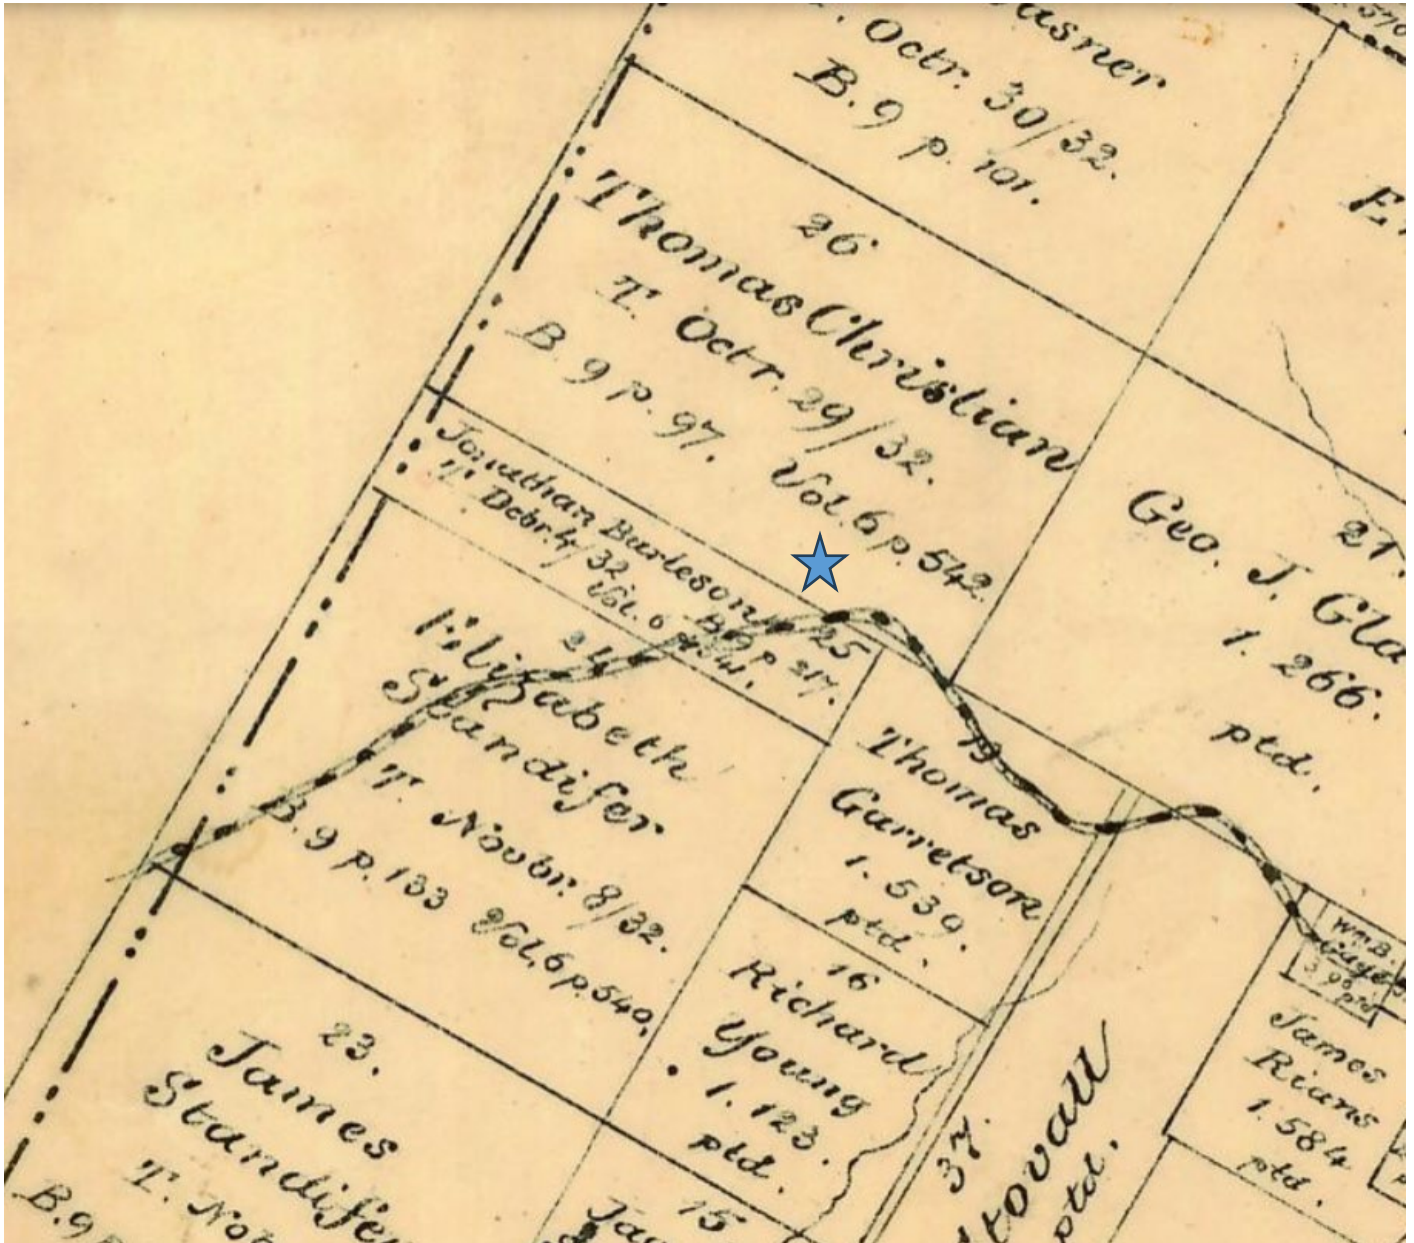 Octr. 30/32.
B. 9 p. 101.
26
Thomas Christian
T. Octr. 29/32.
B. 9 p. 97. Vol. 6 p. 542.
Jonathan Burleson 25
T. Debr. 4/32 B. 9 p. 217.
Vol. 6
24
Elizabeth
Standifer
T. Novbr. 8/32.
B. 9 p. 133 Vol. 6 p. 540.
23.
James
Standifer
T. Nov
B. 9 p
21.
Geo. J. Gla
1. 266.
ptd.
19
Thomas
Garretson
1. 539.
ptd.
16
Richard
Young
1. 123.
ptd.
15
37.
Stovall
ptd.
Wm. B.
James
Rians
1. 584
ptd.